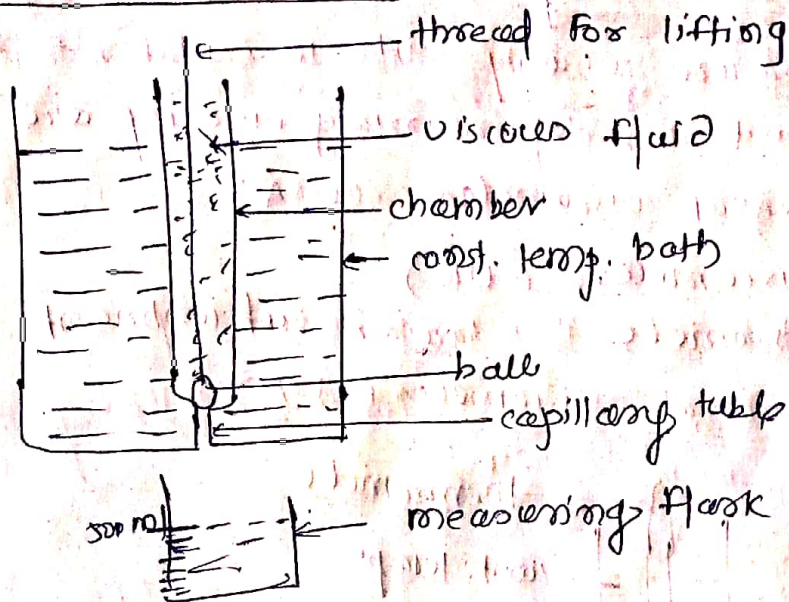 thread for lifting
viscous fluid
chamber
const. temp. bath
ball
capillary tube
measuring flask